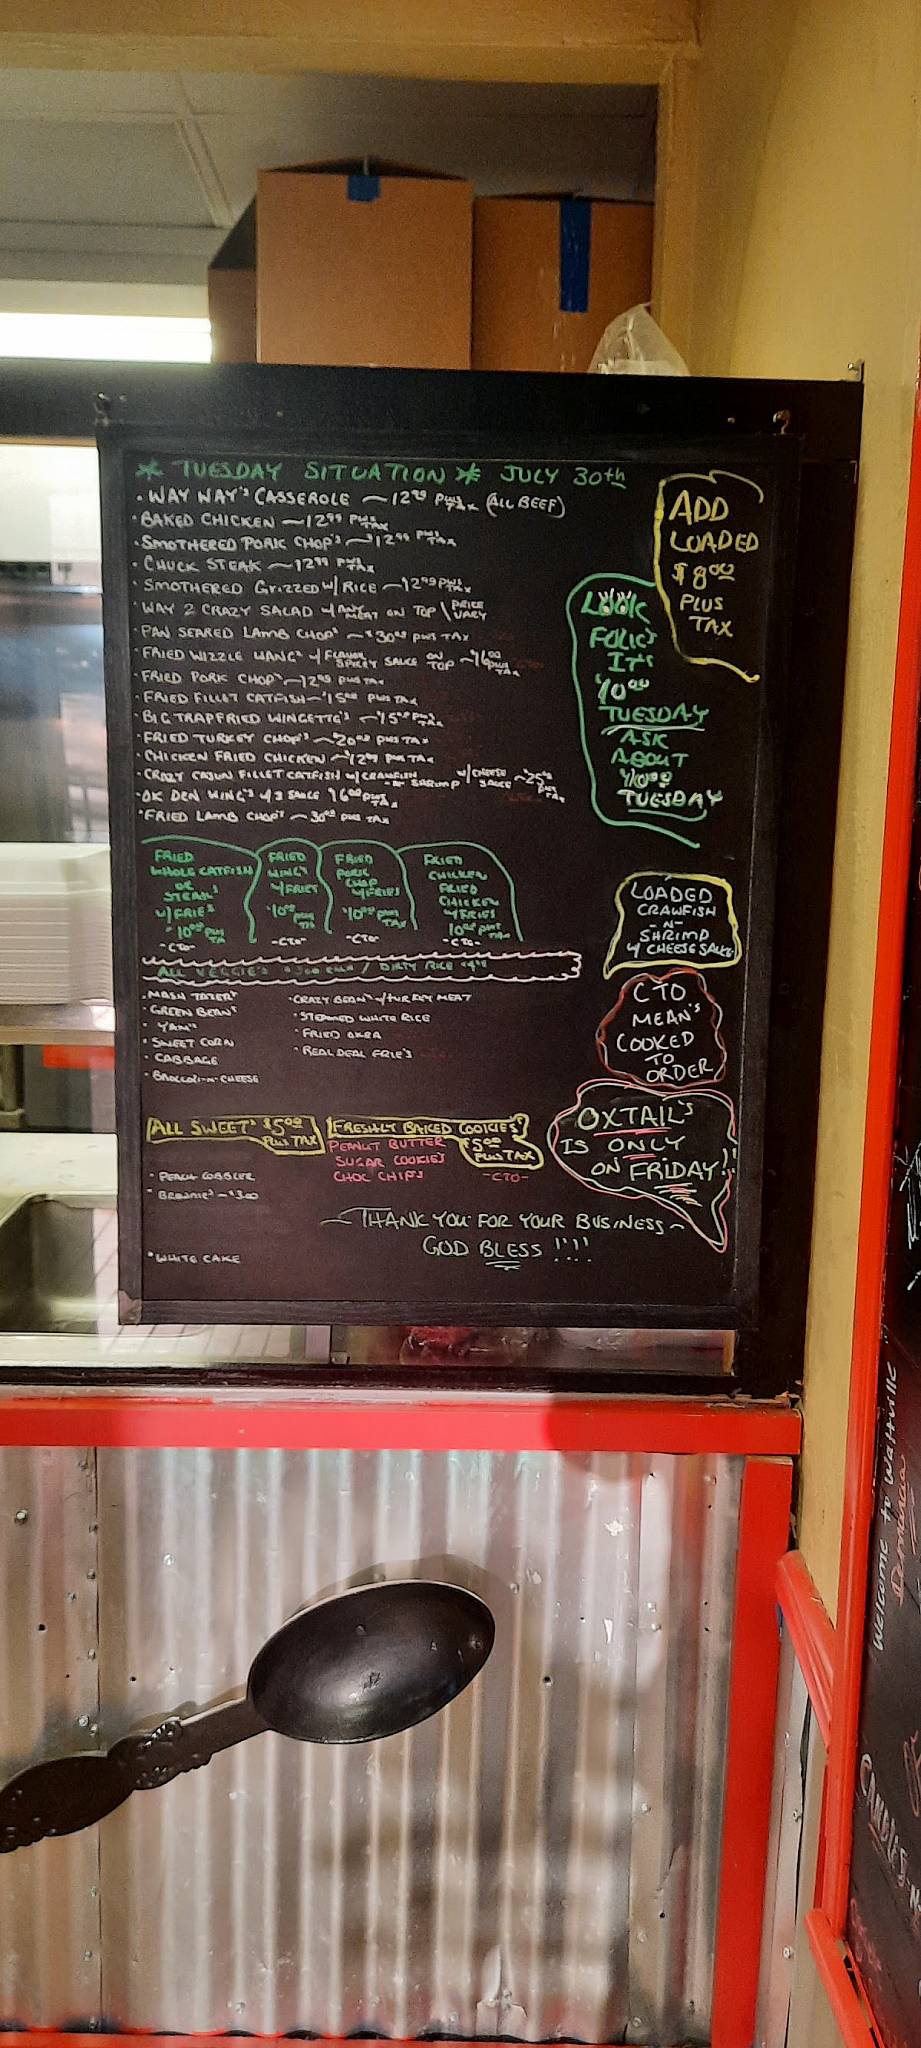 * TUESDAY SITUATION * JULY 30th
• WAY WAY'S CASSEROLE ~ 12.99 PLUS TAX (ALL BEEF)
• BAKED CHICKEN ~ 12.99 PLUS TAX
• SMOTHERED PORK CHOP'S ~ $12.99 PLUS TAX
• CHUCK STEAK ~ 12.99 PLUS TAX
• SMOTHERED GRIZZED W/ RICE ~ 12.99 PLUS TAX
• WAY 2 CRAZY SALAD W/ ANY MEAT ON TOP \ PRICE VARY
• PAN SEARED LAMB CHOP'S ~ $30.00 PLUS TAX
• FRIED WIZZLE WANG'S W/ SPICEY SAUCE ON TOP ~ 16.00 PLUS TAX
• FRIED PORK CHOP'S ~ 12.99 PLUS TAX
• FRIED FILLET CATFISH ~ $15.00 PLUS TAX
• BIG TRAP FRIED WINGETTE'S ~ $15.00 PLUS TAX
• FRIED TURKEY CHOP'S ~ $20.00 PLUS TAX
• CHICKEN FRIED CHICKEN ~ $12.99 PLUS TAX
• CRAZY CAJUN FILLET CATFISH W/ CRAWFISH -N- SHRIMP W/ CHEESE SAUCE ~ $25.00 TAX
• OK DEN WING'S W/ 3 SAUCE $16.00 PLUS TAX
• FRIED LAMB CHOP'S ~ 30.00 PLUS TAX
ADD
LOADED
$8.00
PLUS
TAX
LOOK
FOLK'S
IT'S
$10.00
TUESDAY
ASK
ABOUT
$10.00
TUESDAY
FRIED
WHOLE CATFISH
OR
STEAK'S
W/ FRIE'S
$10.00 PLUS TAX
-CTO-
FRIED
WING'S
W/ FRIES
$10.00 PLUS TAX
-CTO-
FRIED
PORK
CHOP
W/ FRIES
$10.00 PLUS TAX
-CTO-
FRIED
CHICKEN
FRIED
CHICKEN
W/ FRIES
10.00 PLUS TAX
-CTO-
LOADED
CRAWFISH
-N-
SHRIMP
W/ CHEESE SAUCE
ALL VEGGIE'S / DIRTY RICE
• MASH TATER'S
• GREEN BEAN'S
• YAM'S
• SWEET CORN
• CABBAGE
• BROCCOLI-N-CHEESE
• CRAZY BEAN'S W/ TURKEY MEAT
• STEAMED WHITE RICE
• FRIED OKRA
• REAL DEAL FRIE'S
CTO
MEAN'S
COOKED
TO
ORDER
ALL SWEET'S $5.00
PLUS TAX
FRESHLY BAKED COOKIES'
PEANUT BUTTER
SUGAR COOKIE'S
CHOC CHIP'S
$5.00
PLUS TAX
-CTO-
OXTAIL'S
IS ONLY
ON FRIDAY!!
• PEACH COBBLER
• BROWNIE'S ~ $3.00
• WHITE CAKE
~ THANK YOU FOR YOUR BUSINESS ~
GOD BLESS !!!!
WELCOME to
CANDLES